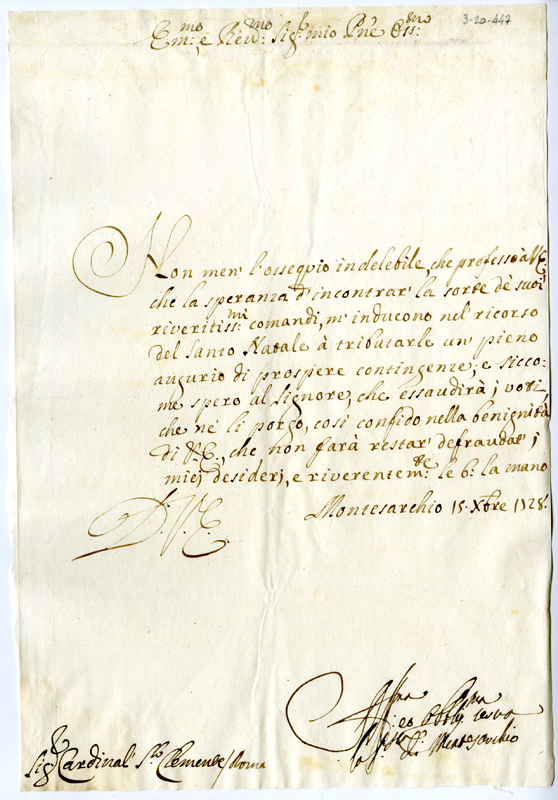 3-20-447
Em:mo e Rev:mo Sig:r mio P'ne Oss:mo
Non men' l'ossequio indelebile, che professo à V.E.
che la speranza d'incontrar' la sorte de' suoi
riveritiss:mi comandi, m'inducono nel ricorso
del Santo Natale à tributarle un' pieno
augurio di prospere contingenze; e sicco-
me spero al Signore, che essaudirà i voti,
che né li porgo, così confido nella benignità
di V.E., che non farà restar' defraudati i
miei desiderj, e riverentem:te le b: la mano
Montesarchio 15. Xbre 1728.
D: V: E:
Sig:r Cardinal' S: Clemente / Roma